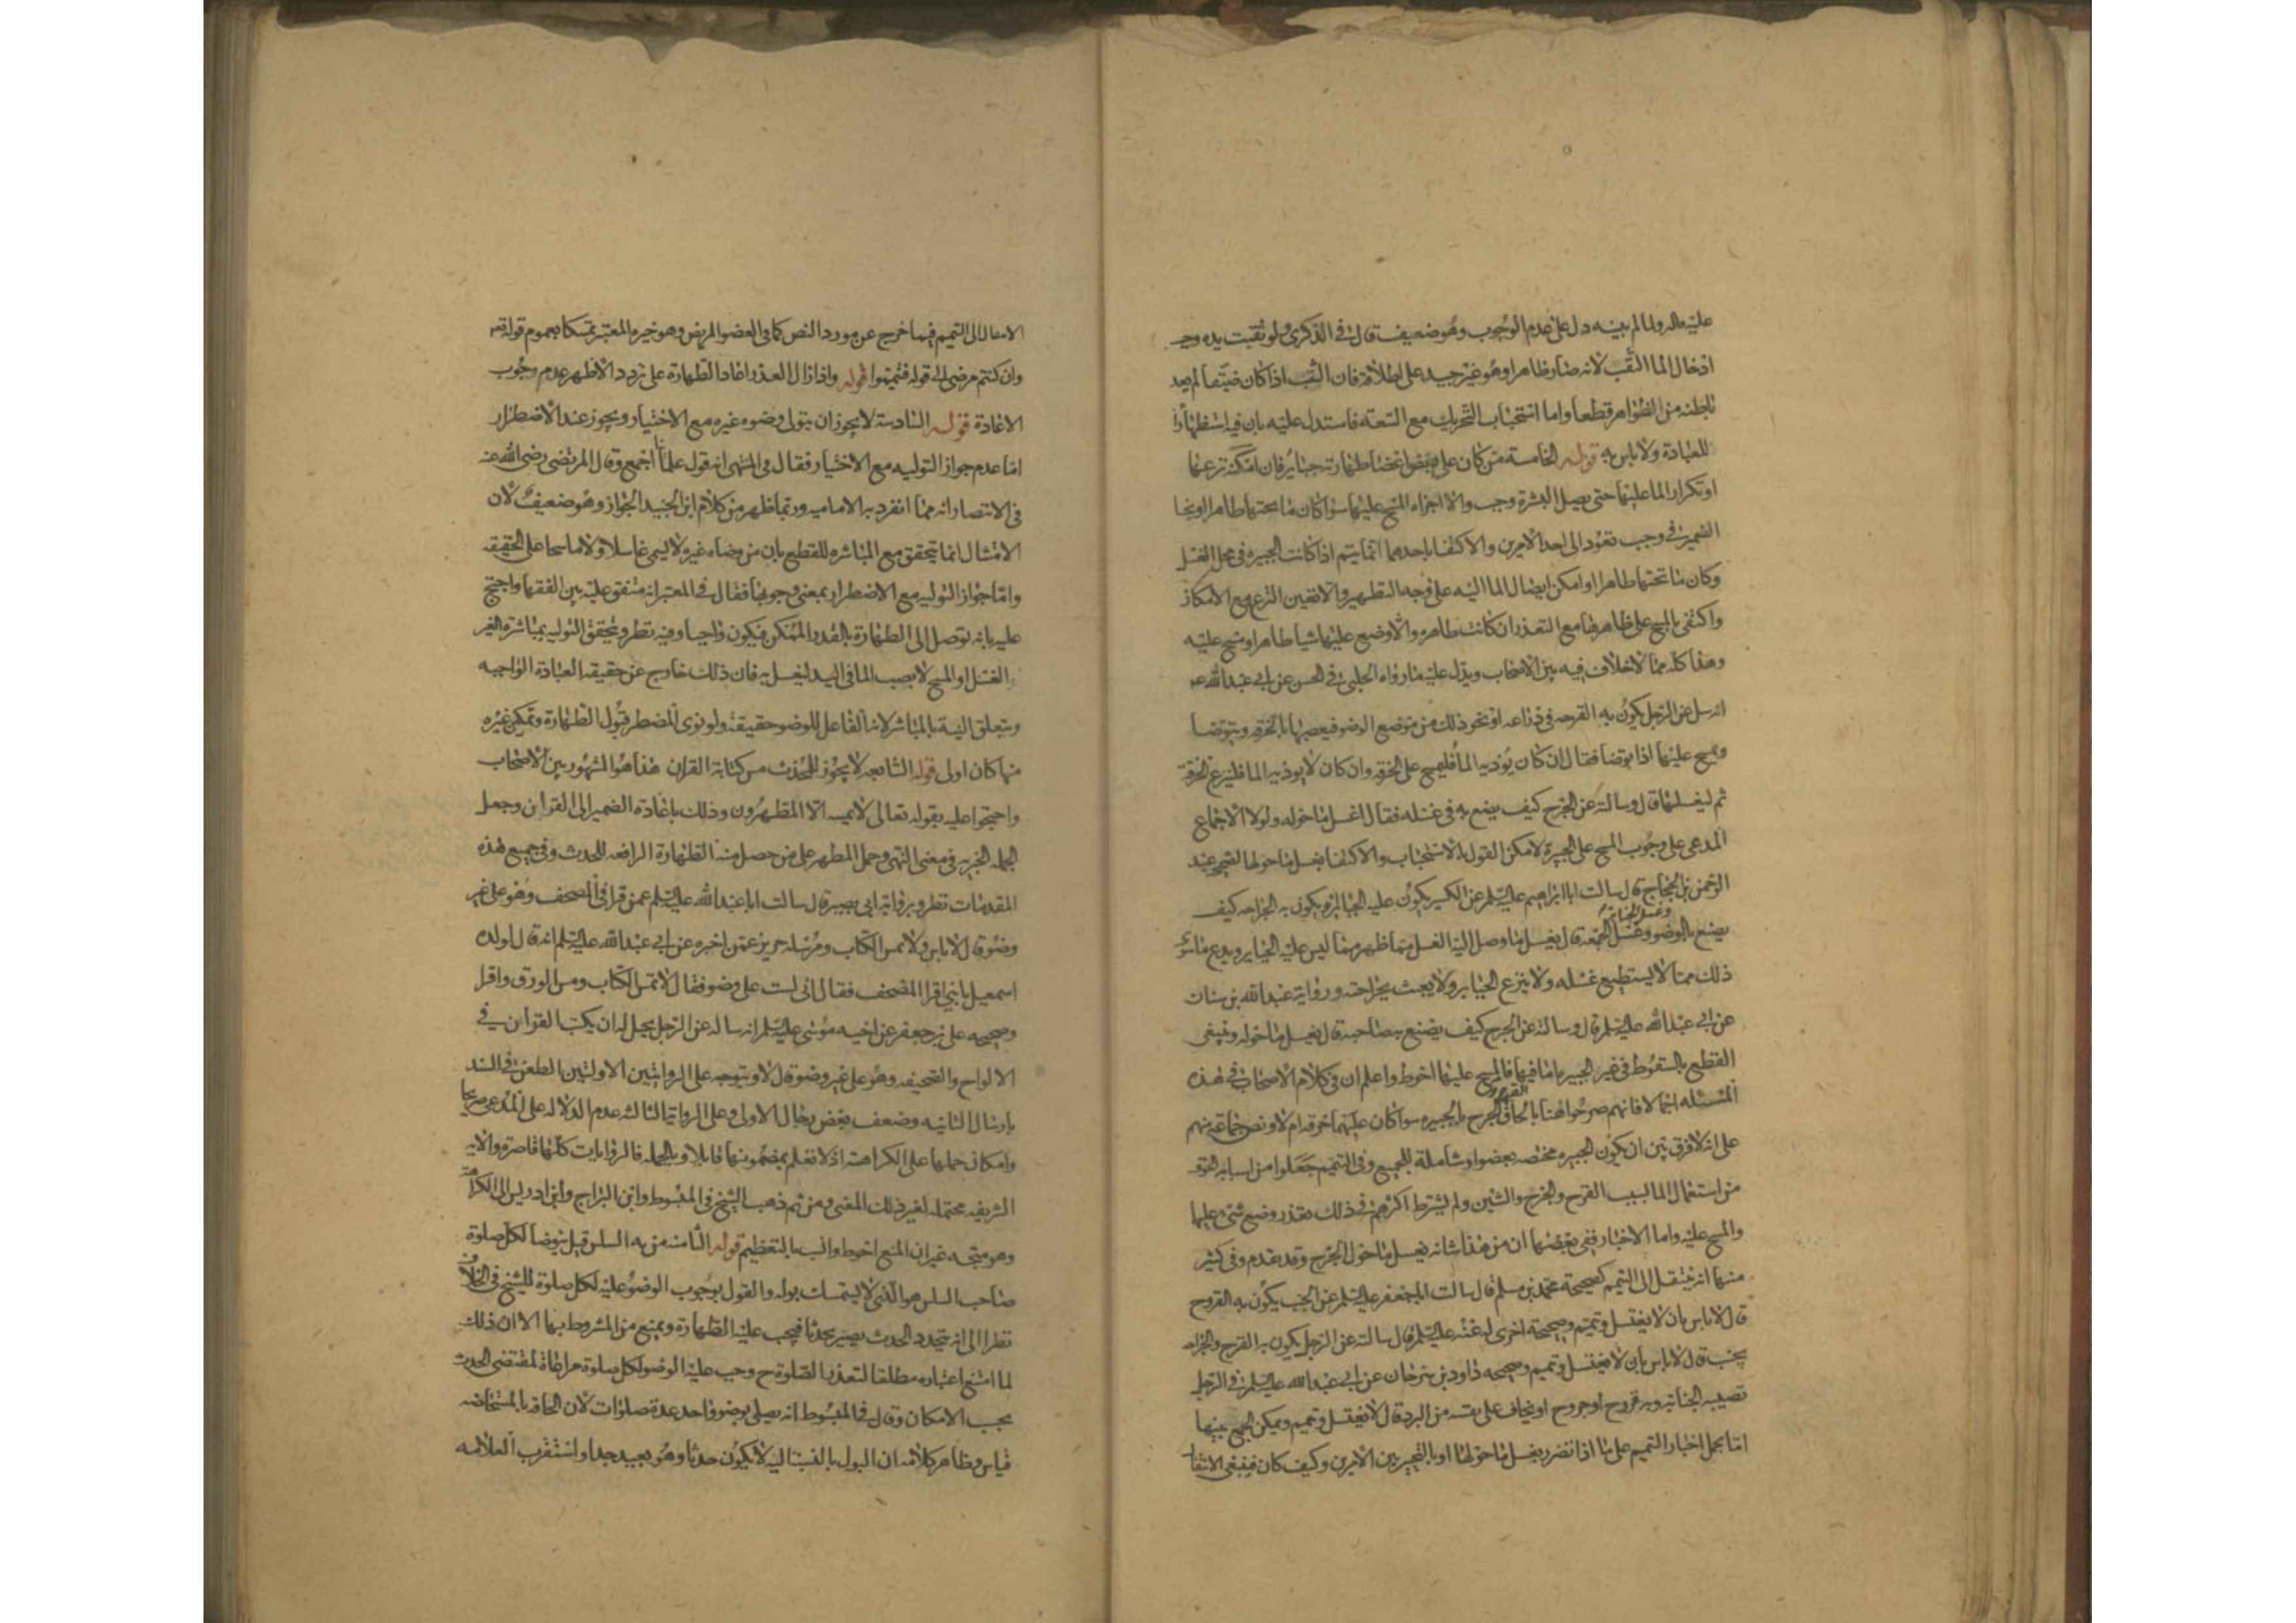 عليه واله ولما لم يبينه دل على عدم الوجوب وهو ضعيف قال في الذكرى ولو ثقبت يده وجب
ادخال الما الثقب لانه صار ظاهرا وهو غير جيد على اطلاقه فان الثقب اذا كان ضيقا لم يعد
باطنه من الظواهر قطعا واما استحباب التحريك مع السعه فاستدل عليه بان فيه استظهارا
للعبادة ولا باس به قوله الخامسة من كان على بعض اعضا طهارته جباير فان امكنه نزعها
او تكرار الما عليها حتى يصل البشرة وجب والا اجزاه المسح عليها سوا كان ما تحتها طاهرا او نجسا
الضمير في وجب تعود الى احد الامرين والاكتفا باحدهما انما يتم اذا كانت الجبيره في محل الغسل
وكان ما تحتها طاهرا او امكن ايصال الما اليه على وجه التطهير والا تعين النزع مع الامكان
واكتفى بالمسح على ظاهرها مع التعذر ان كانت طاهره والا وضع عليها شيا طاهرا ومسح عليه
وهذا كله مما لا خلاف فيه بين الاصحاب ويدل عليه ما رواه الحلبي في الحسن عن ابي عبدالله ع
انه سل عن الرجل يكون به القرحه في ذراعه او نحو ذلك من موضع الوضو فيعصبها بالخرقه ويتوضا
ويمسح عليها اذا توضا فقال ان كان يؤذيه الما فليمسح على الخرقه وان كان لا يوذيه الما فلينزع الخرقة
ثم ليغسلها قال وسالته عن الجرح كيف يصنع به في غسله فقال اغسل ما حوله ولولا الاجماع
المدعى على وجوب المسح على الجبيرة لامكن القول بالاستحباب والاكتفا بغسل ما حولها لصحيحة عبد
الرحمن بن الحجاج قال سالت ابا ابراهيم عليه السلم عن الكسير يكون عليه الجباير او يكون به الجراحه كيف
يصنع بالوضو وغسل الجنابة وغسل الجمعة قال يغسل ما وصل اليه الغسل مما ظهر مما ليس عليه الجباير ويدع ما سوى
ذلك مما لا يستطيع غسله ولا ينزع الجباير ولا يعبث بجراحته ورواية عبدالله بن سنان
عن ابي عبدالله عليه السلم قال وسالته عن الجرح كيف يصنع به صاحبه قال يغسل ما حوله وينبغي
القطع بالسقوط في غير الجبيره اما فيها فالمسح عليها احوط واعلم ان في كلام الاصحاب في هذه
المسئله اجمالا فانهم صرحوا هنا بالحاق القروح الجرح بالجبيره سوا كان عليهما خرقه ام لا ونص جماعة منهم
على انه لا فرق بين ان يكون الجبيره مختصه بعضو او شاملة للجميع وفي التيمم جعلوا من اسبابه الخوف
من استعمال الما بسبب القرح والجرح والشين ولم يشترط اكثرهم في ذلك تعذر وضع شيء عليها
والمسح عليه واما الاخبار ففي بعضها ان من هذا شانه يغسل ما حول الجرح وقد تقدم وفي كثير
منها انه ينتقل الى التيمم كصحيحة محمد بن مسلم قال سالت ابا جعفر عليه السلم عن الجنب يكون به القروح
قال لا باس بان لا يغتسل ويتيمم وصحيحة اخرى له عنه عليه السلم قال سالته عن الرجل يكون به القرح والجراحه
يجنب قال لا باس بان لا يغتسل ويتيمم وصحيحه داود بن سرحان عن ابي عبدالله عليه السلم في الرجل
تصيبه الجنابه وبه قروح او جروح او يخاف على نفسه من البرد قال لا يغتسل ويتيمم ويمكن الجمع بينها
اما بحمل اخبار التيمم على ما اذا تضرر بغسل ما حولها او بالتخيير بين الامرين وكيف كان فينبغي الانتقا
الانتقال الى التيمم فيما خرج عن مورد النص كما في العضو المريض وهو خيره المعتبر تمسكا بعموم قوله تع
وان كنتم مرضى الى قوله فتيمموا قوله واذا زال العذر اعاد الطهارة على تردد الاظهر عدم وجوب
الاعادة قوله السادسة لا يجوز ان يتولى وضوه غيره مع الاختيار ويجوز عند الاضطرار
اما عدم جواز التوليه مع الاختيار فقال في المنتهى انه قول علمائنا اجمع وقال المرتضى رضي الله عنه
في الانتصار انه مما انفرد به الاماميه وربما ظهر من كلام ابن الجنيد الجواز وهو ضعيف لان
الامتثال انما يتحقق مع المباشره للقطع بان من وضاه غيره لا يسمى غاسلا ولا ماسحا على الحقيقه
واما جواز التوليه مع الاضطرار بمعنى وجوبها فقال في المعتبر انه متفق عليه بين الفقها واحتج
عليه بانه توصل الى الطهارة بالقدر الممكن فيكون واجبا وفيه نظر وتحقق التوليه بمباشرة الغير
الغسل او المسح لا بصب الما في اليد ليغسل به فان ذلك خارج عن حقيقه العبادة الواجبه
ويتعلق النية بالمباشر لانه الفاعل للوضو حقيقة ولو نوى المضطر قبول الطهارة وتمكين غيره
منها كان اولى قوله السابعه لا يجوز للمحدث مس كتابة القران هذا هو المشهور بين الاصحاب
واحتجوا عليه بقوله تعالى لا يمسه الا المطهرون وذلك باعادة الضمير الى القران وجعل
الجمله الخبريه في معنى النهي وحمل المطهر على من حصل منه الطهارة الرافعه للحدث وفي جميع هذه
المقدمات نظر وبرواية ابي بصير قال سالت ابا عبدالله عليه السلم عمن قرا في المصحف وهو على غير
وضو قال لا باس ولا يمس الكتاب ومرسله حريز عمن اخبره عن ابي عبدالله عليه السلم انه قال لولده
اسمعيل يا بني اقرا المصحف فقال اني لست على وضو فقال لا تمس الكتاب ومس الورق واقرا
وصحيحه علي بن جعفر عن اخيه موسى عليه السلم انه ساله عن الرجل يحل له ان يكتب القران في
الالواح والصحيفه وهو على غير وضو قال لا ويتوجه على الروايتين الاوليتين الطعن في السند
بارسال الثانيه وضعف بعض رجال الاولى وعلى الرواية الثالثه عدم الدلاله على المدعى صريحا
وامكان حملها على الكراهه اذ لا نعلم بمضمونها قايلا وبالجمله فالروايات كلها قاصره والايه
الشريفه محتمله لغير ذلك المعنى ومن ثم ذهب الشيخ في المبسوط وابن البراج وابن ادريس الى الكراهة
وهو متجه غير ان المنع احوط وانسب بالتعظيم قوله الثامنه من به السلس قيل يتوضا لكل صلوة
صاحب السلس هو الذي لا يستمسك بوله والقول بوجوب الوضو عليه لكل صلوة للشيخ في الخلاف
نظرا الى انه يتجدد الحدث يصير محدثا فيجب عليه الطهارة ويمنع من المشروط بها الا ان ذلك
لما امتنع اعتباره مطلقا لتعذر الصلوة ح وجب عليه الوضو لكل صلوة مراعاة لمقتضى الحدث
بحسب الامكان وقال في المبسوط انه يصلي بوضو واحد عدة صلوات لان الحاقه بالمستحاضه
قياس وظاهر كلامه ان البول بالنسبة اليه لا يكون حدثا وهو بعيد جدا واستقرب العلامه